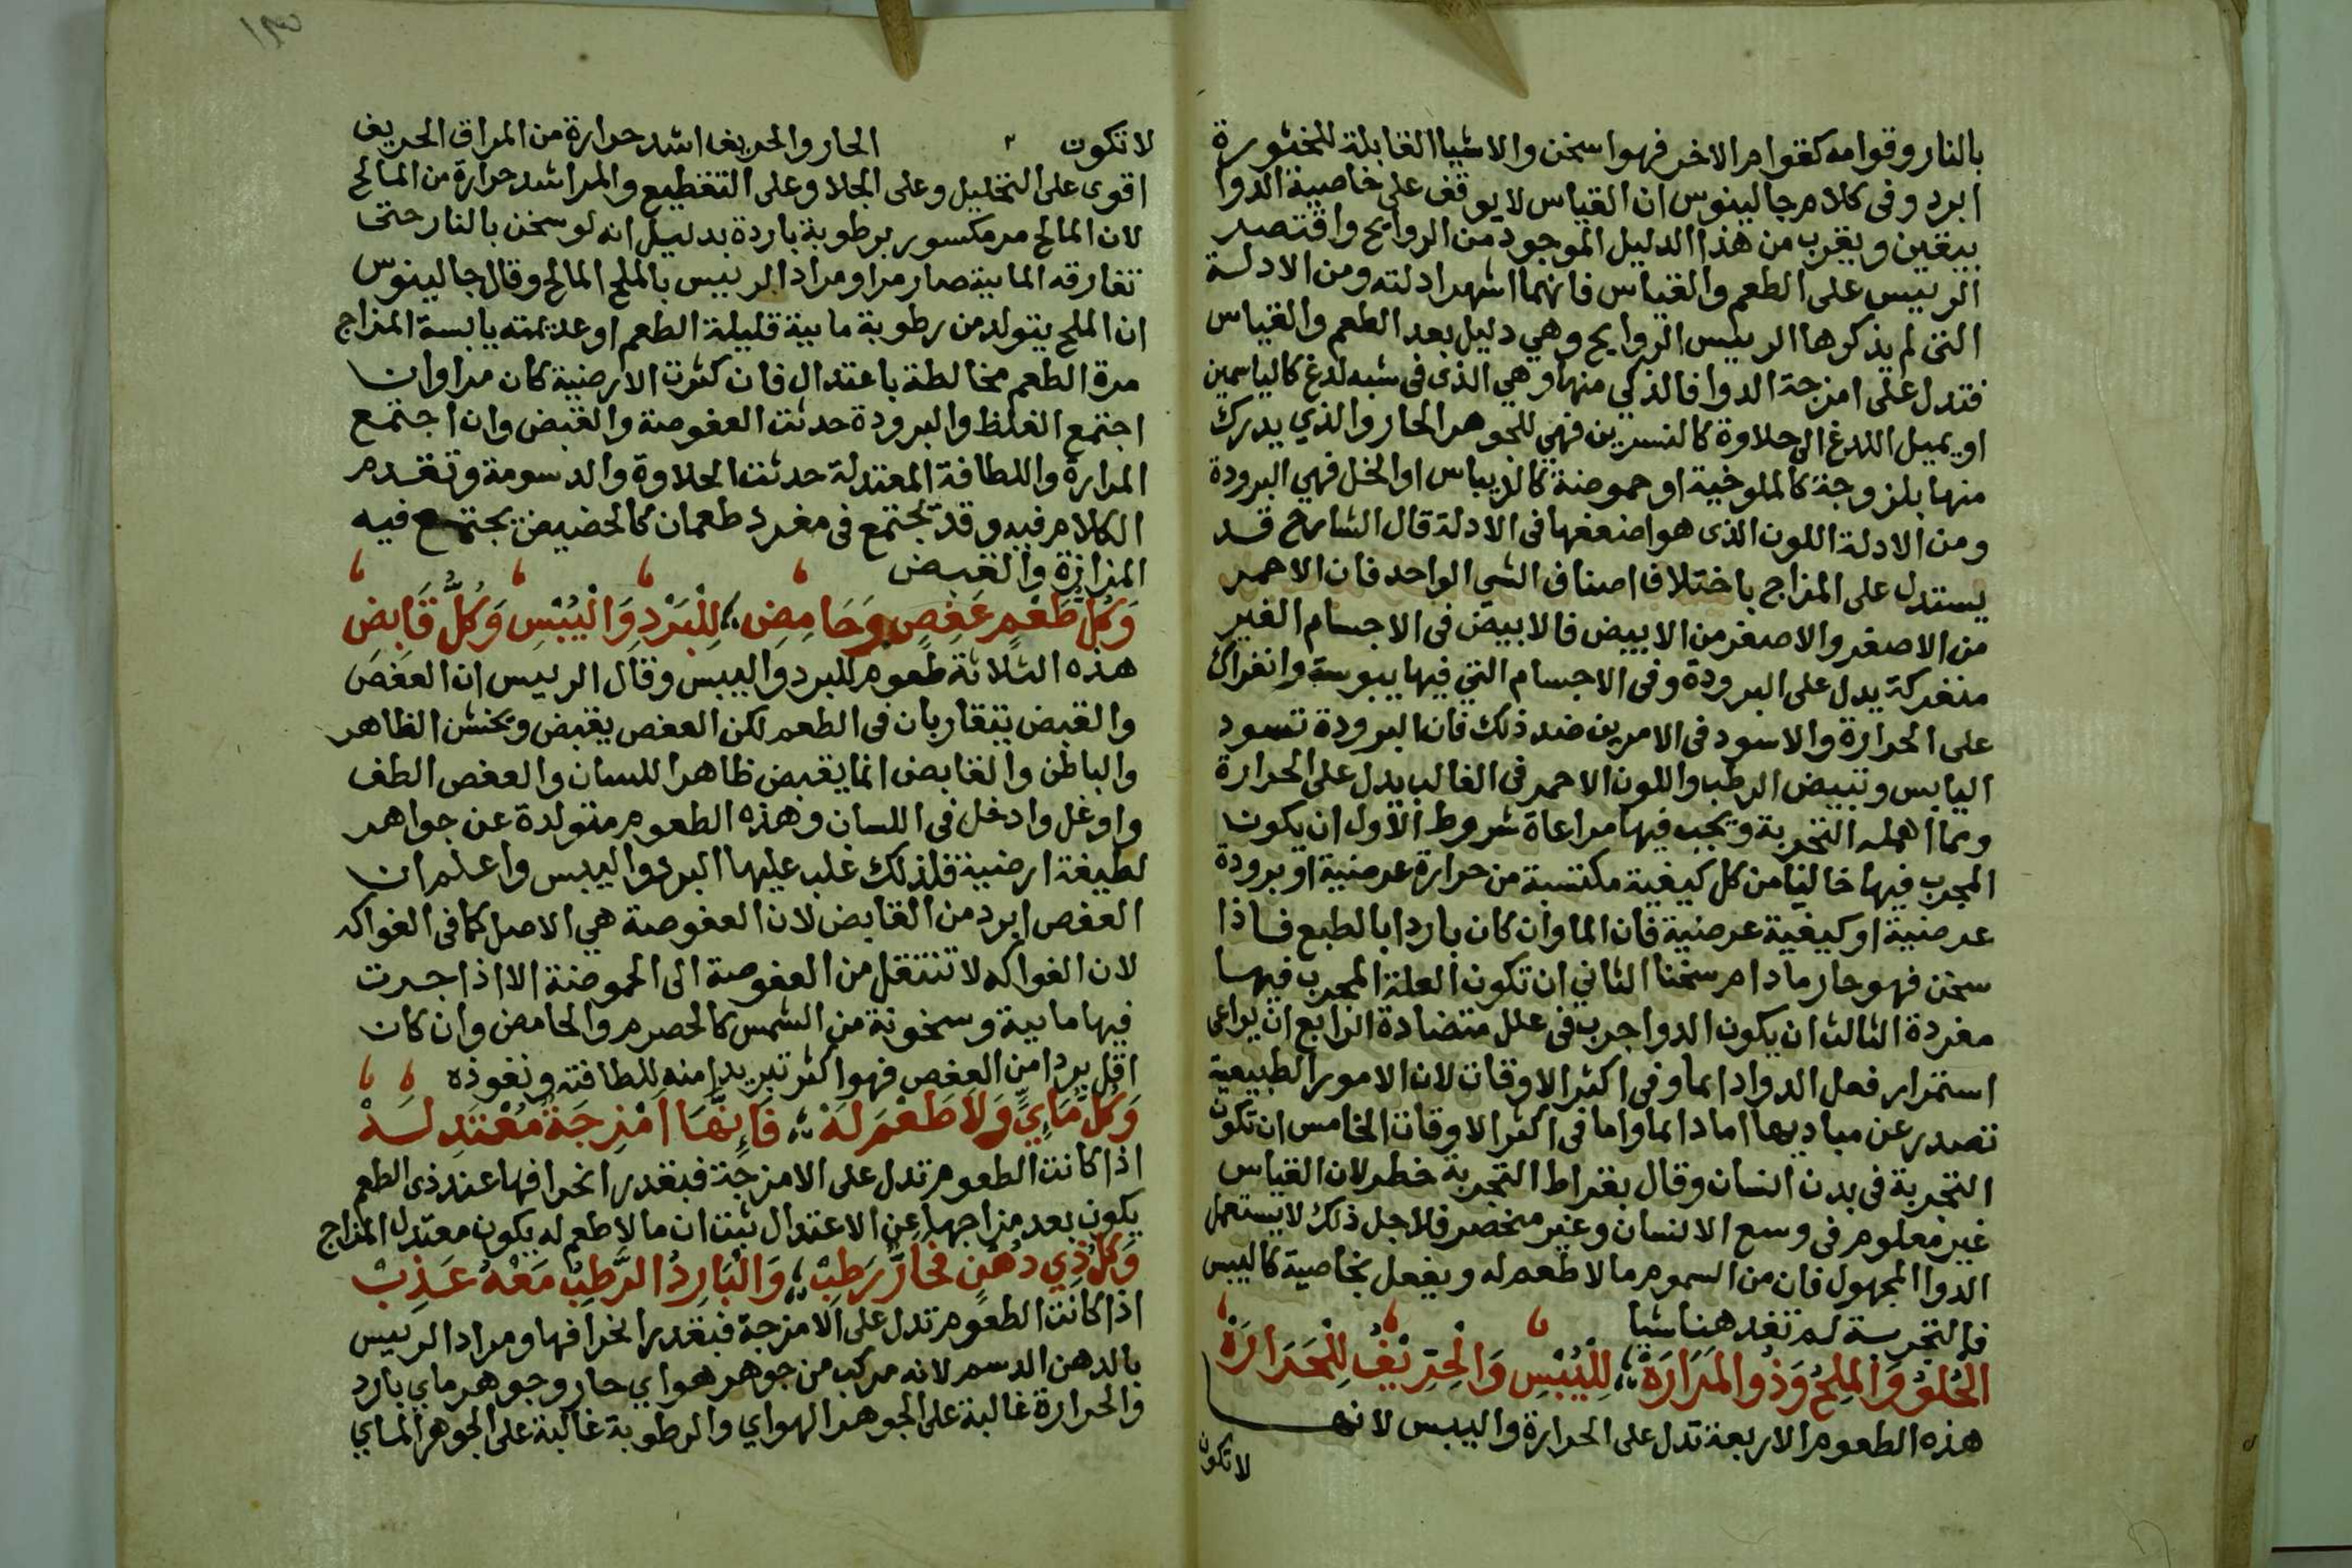 بالنار وقوامه كقوام الاخر فهو اسخن والاشيا القابلة للخثورة
ابرد وفى كلام جالينوس ان القياس لا يوقف على خاصية الدوا
بيقين ويقرب من هذا الدليل الموجود من الروايح واقتصر
الرييس على الطعم والقياس فانهما اشهر ادلته ومن الادلة
التى لم يذكرها الرييس الروايح وهي دليل بعد الطعم والقياس
فتدل على امزجة الدوا فالذكي منها وهي الذى فى شبه لدغ كالياسمين
او يميل اللدغ الى حلاوة كالنسرين فهي للجوهر الحار والذي يدرك
منها بلزوجة كالملوخية او حموضة كالريباس او الخل فهي البرودة
ومن الادلة اللون الذى هو اضعفها فى الادلة قال الشارح قد
يستدل على المزاج باختلاف اصناف الشى الواحد فان الاحمر
من الاصفر والاصفر من الابيض فالابيض فى الاجسام الغير
منفركة يدل على البرودة وفى الاجسام التي فيها يبوسة وانفراك
على الحرارة والاسود فى الامرين ضد ذلك فان البرودة تسود
اليابس وتبيض الرطب واللون الاحمر فى الغالب يدل على الحرارة
ومما اهمله التجربة ويجب فيها مراعاة شروط الاول ان يكون
المجرب فيها خاليا من كل كيفية مكتسبة من حرارة عرضية او برودة
عرضية او كيفية عرضية فان الما وان كان باردا بالطبع فاذا
سخن فهو حار ما دام سخنا الثاني ان تكون العلة المجرب فيها
مفردة الثالث ان يكون الدوا جرب فى علل متضادة الرابع ان يراعى
استمرار فعل الدوا دايما وفى اكثر الاوقات لان الامور الطبيعية
تصدر عن مباديها اما دايما واما فى اكثر الاوقات الخامس ان تكون
التجربة فى بدن انسان وقال بقراط التجربة خطر لان القياس
غير معلوم فى وسع الانسان وغير منحصر فلاجل ذلك لا يستعمل
الدوا المجهول فان من السموم ما لا طعم له ويفعل بخاصية كالبيس
فالتجربة لم تفد هنا شيا
الحُلوُ وَالمِلحُ وَذُو المَرَارَةْ ؛ لِلْيُبْسِ وَالْحِرِّيْفُ لِلْحَرَارَةْ
هذه الطعوم الاربعة تدل على الحرارة واليبس لانها
لا تكون
لا تكون الحار والحريف اشد حرارة من المر اذ الحريف
اقوى على التحليل وعلى الجلا وعلى التقطيع والمر اشد حرارة من المالح
لان المالح مر مكسور برطوبة باردة بدليل انه لو سخن بالنار حتى
تفارقه المايية صار مرا ومراد الرييس بالملح المالح وقال جالينوس
ان الملح يتولد من رطوبة مايية قليلة الطعم او عديمته يابسة المزاج
مرة الطعم مخالطة باعتدال فان كثرت الارضية كان مرا وان
اجتمع الغلظ والبرودة حدثت العفوصة والقبض وان اجتمع
المرارة واللطافة المعتدلة حدثت الحلاوة والدسومة وتقدم
الكلام فيه وقد تجتمع فى مفرد طعمان كالحضيض يجتمع فيه
المرارة والقبض
وَكُلُّ طَعْمٍ عَفِصٍ وَحَامِضِ ؛ لِلْبَرْدِ وَالْيُبْسِ وَكُلُّ قَابِضِ
هذه الثلاثة طعوم للبرد واليبس وقال الرييس ان العفص
والقبض يتقاربان فى الطعم لكن العفص يقبض ويخشن الظاهر
والباطن والقابض انما يقبض ظاهر اللسان والعفص الطف
واوغل وادخل فى اللسان وهذه الطعوم متولدة عن جواهر
لطيفة ارضية فلذلك غلب عليها البرد واليبس واعلم ان
العفص ابرد من القابض لان العفوصة هي الاصل كما فى الفواكه
لان الفواكه لا تنتقل من العفوصة الى الحموضة الا اذا جرت
فيها مايية وسخونة من الشمس كالحصرم والحامض وان كان
اقل بردا من العفص فهو اكثر تبريدا منه للطافته ونفوذه
وَكُلُّ مَايِيٍّ وَلَا طَعْمَ لَهْ ؛ فَإِنَّهَا امْزِجَةٌ مُعْتَدِلَهْ
اذا كانت الطعوم تدل على الامزجة فبقدر انحرافها عند ذى الطعم
يكون بعد مزاجها عن الاعتدال ثبت ان ما لا طعم له يكون معتدل المزاج
وَكُلُّ ذِي دُهْنٍ فَحَارٌّ رَطِبْ ؛ وَالْبَارِدُ الرَّطِبُ مَعْهُ عَذِبْ
اذا كانت الطعوم تدل على الامزجة فبقدر انحرافها ومراد الرييس
بالدهن الدسم لانه مركب من جوهر هواي حار وجوهر ماي بارد
والحرارة غالبة على الجوهر الهواي والرطوبة غالبة على الجوهر الماي